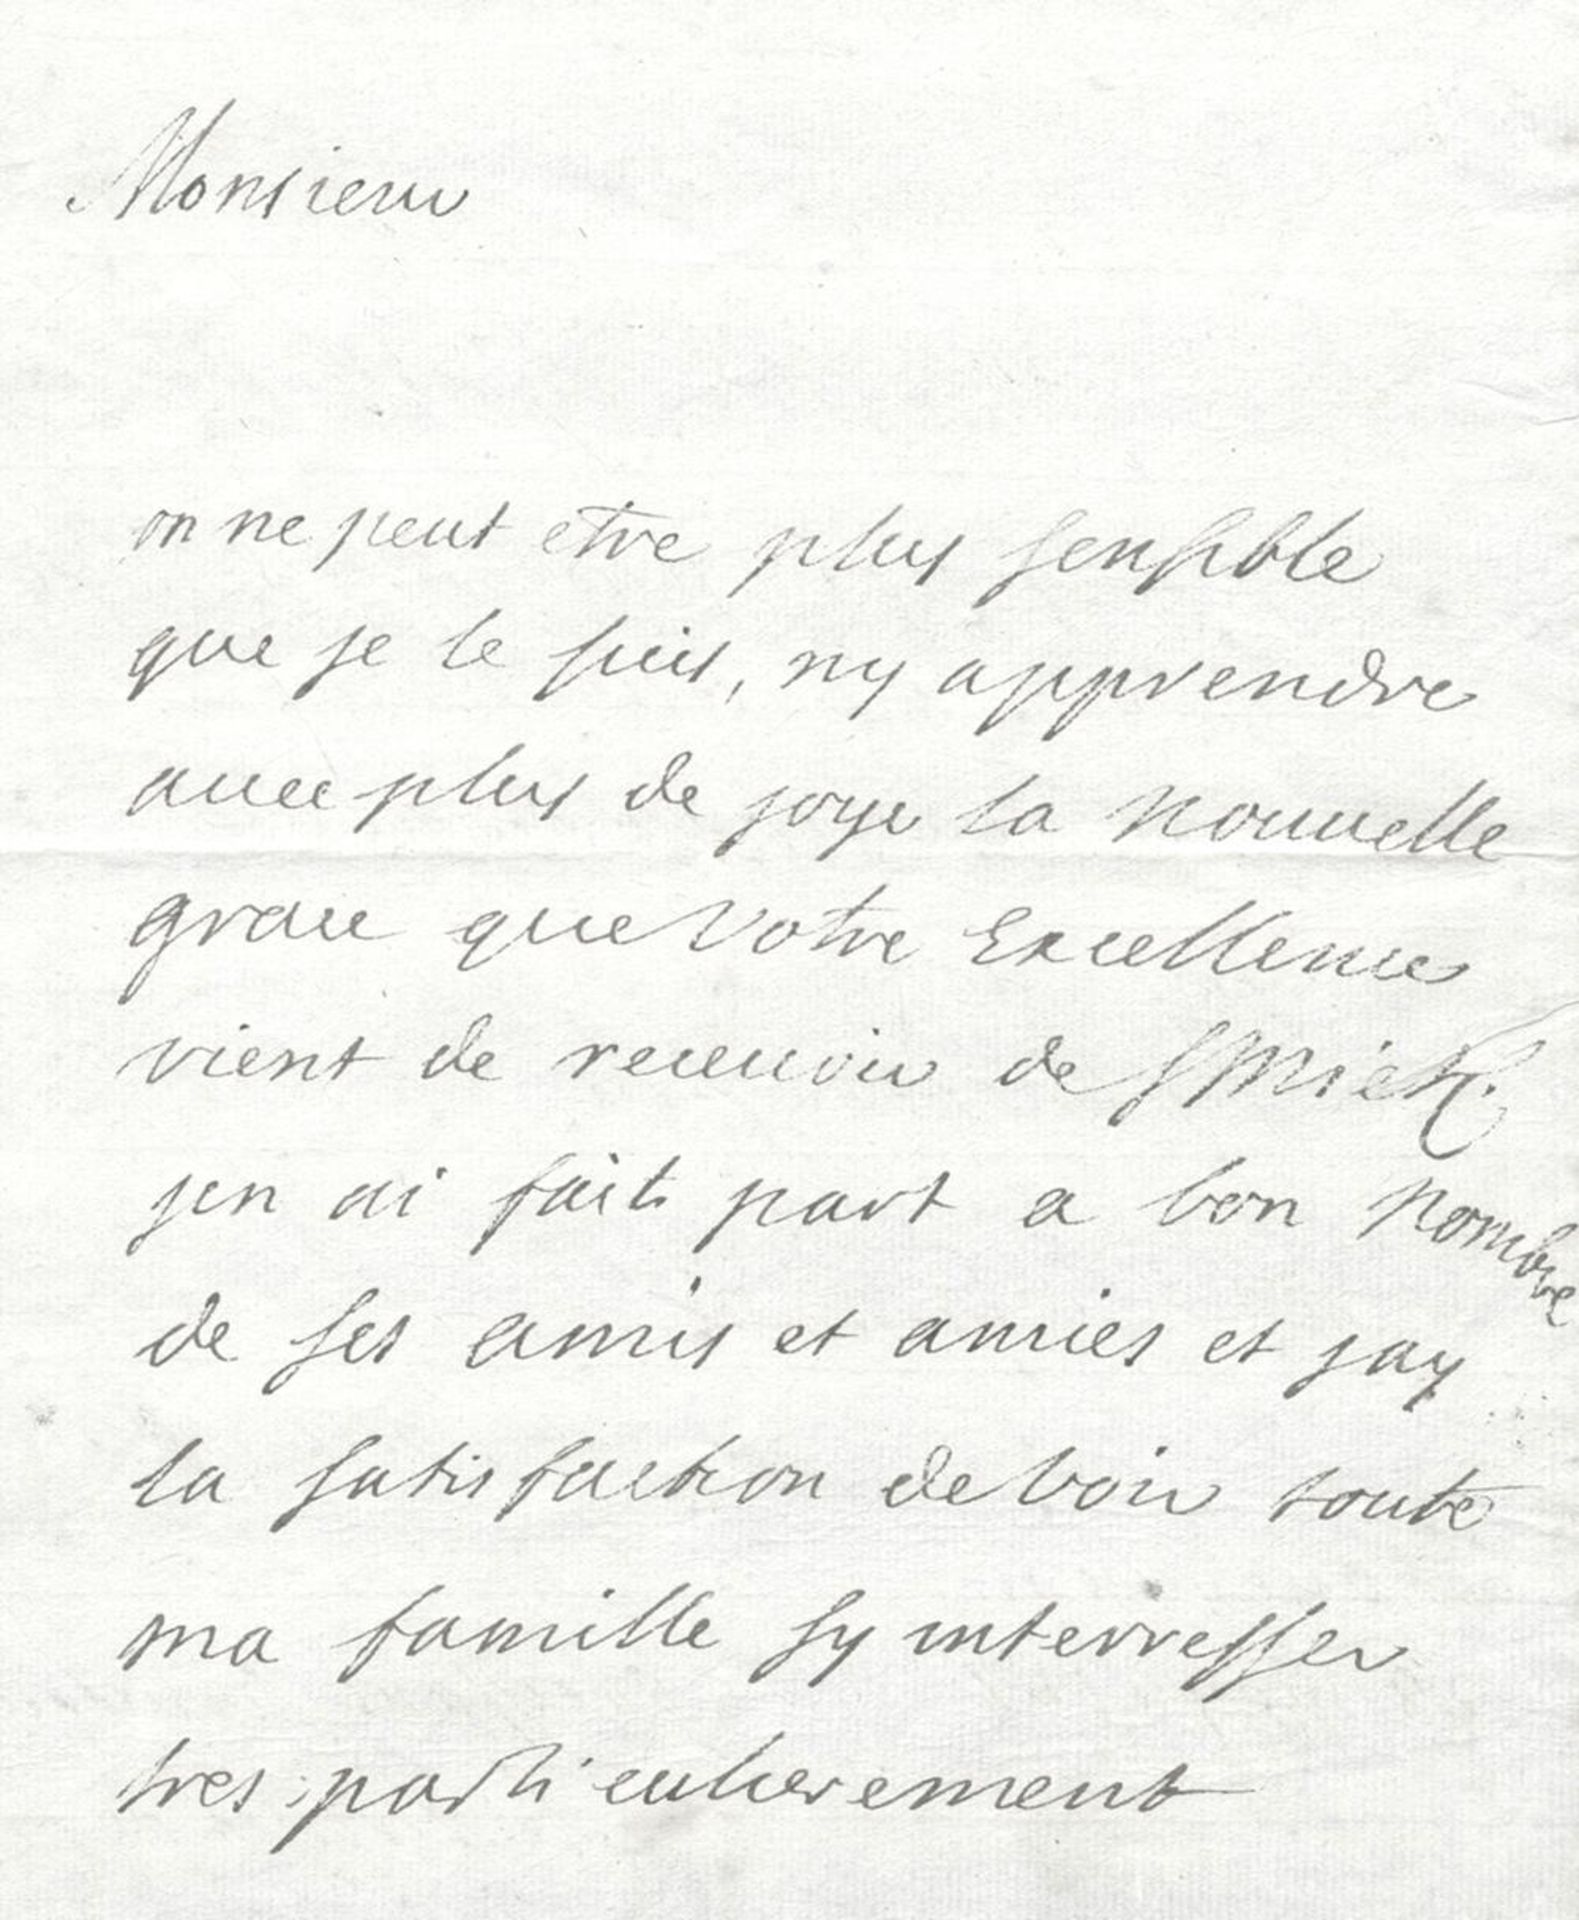 Monsieur
on ne peut etre plus sensible
que je le suis, ny apprendre
avec plus de joye la nouvelle
grace que Votre Excellence
vient de recevoir de
jen ai fait part a bon nombre
de ses amis et amies et jay
la satisfaction de voir toute
ma famille sy interresser
tres particulierement